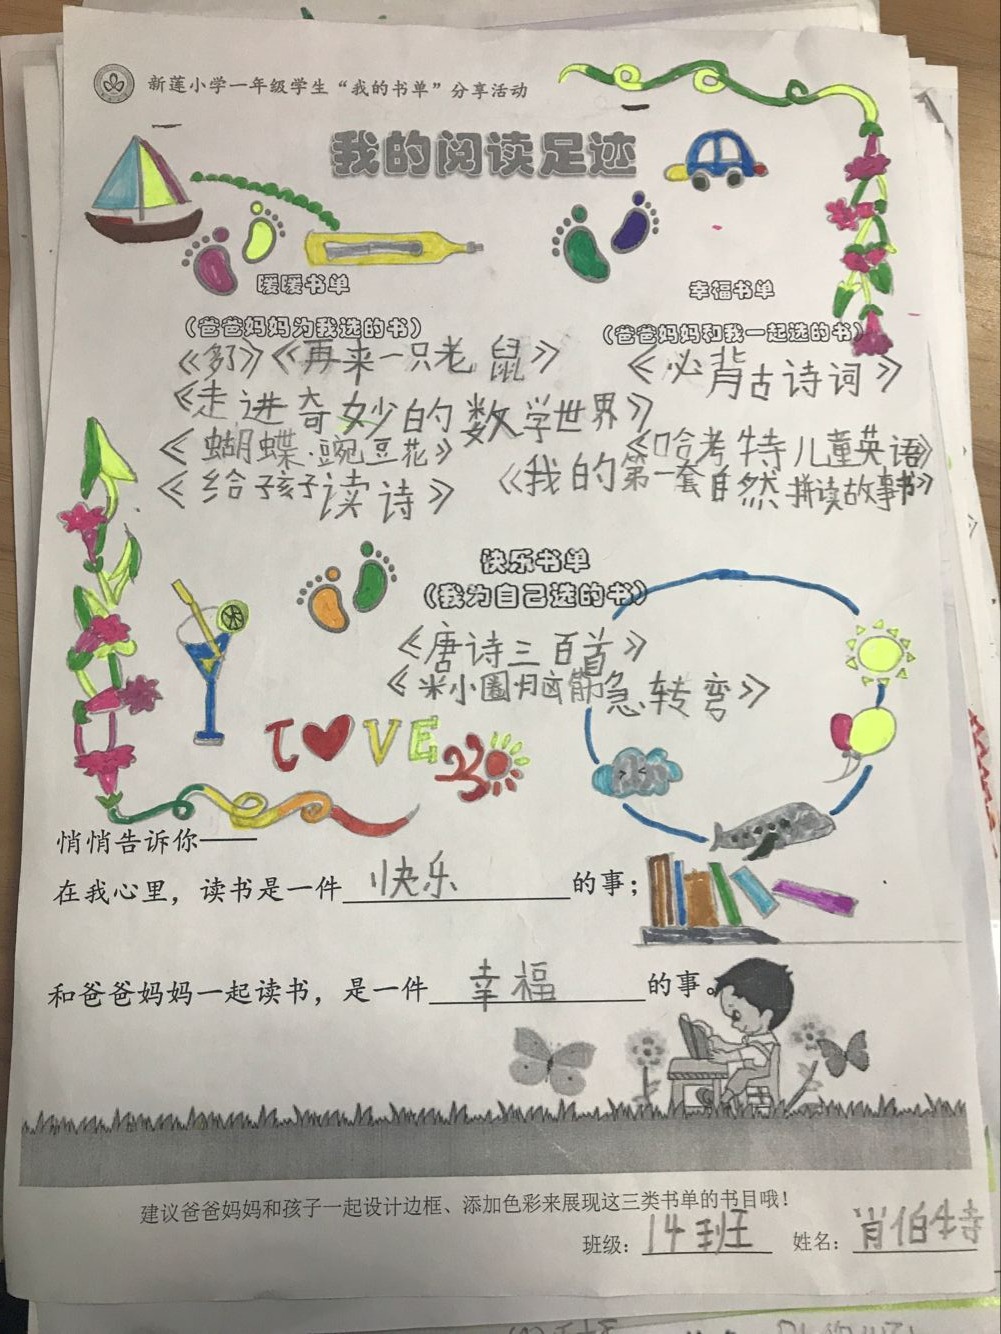 新莲小学一年级学生“我的书单”分享活动
我的阅读足迹
暖暖书单
(爸爸妈妈为我选的书)
《多了》《再来一只老鼠》
《走进奇妙的数学世界》
《蝴蝶·豌豆花》
《给孩子读诗》
幸福书单
(爸爸妈妈和我一起选的书)
《必背古诗词》
《哈考特儿童英语》
《我的第一套自然拼读故事书》
快乐书单
(我为自己选的书)
《唐诗三百首》
《米小圈脑筋急转弯》
LOVE
悄悄告诉你——
在我心里，读书是一件快乐的事；
和爸爸妈妈一起读书，是一件幸福的事。
建议爸爸妈妈和孩子一起设计边框、添加色彩来展现这三类书单的书目哦！
班级：14班 姓名：肖伯特